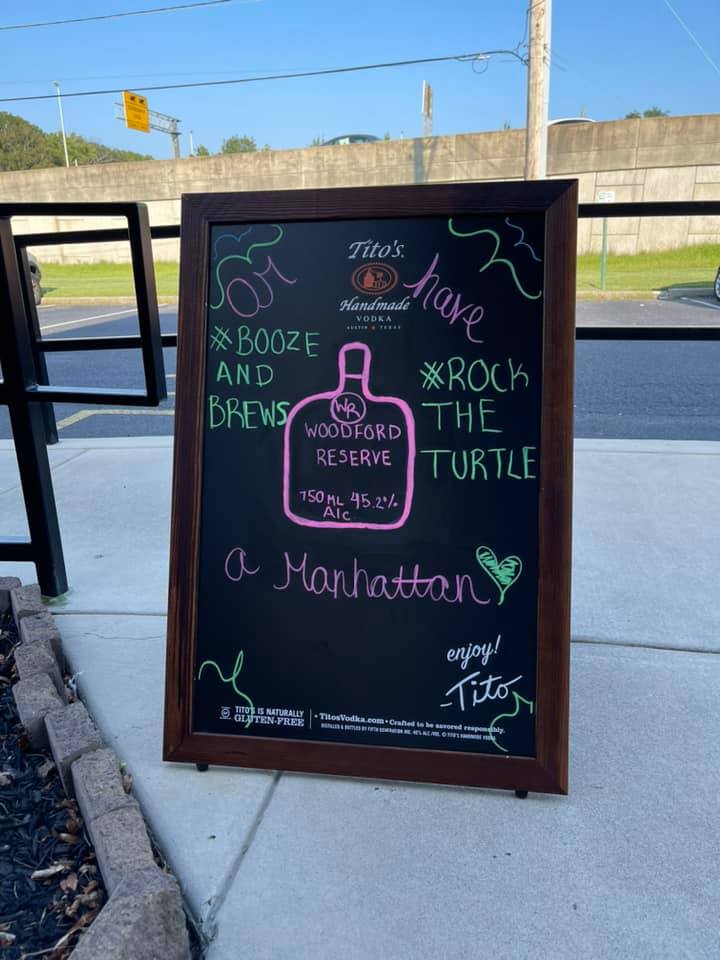 Tito's
Handmade
VODKA
AUSTIN TEXAS
or have
#BOOZE
AND
BREWS
#ROCK
THE
TURTLE
WR
WOODFORD
RESERVE
750 ML 45.2%
Alc
a Manhattan
enjoy!
-Tito
TITO'S IS NATURALLY
GLUTEN-FREE
• TitosVodka.com • Crafted to be savored responsibly.
DISTILLED & BOTTLED BY FIFTH GENERATION INC. 40% ALC./VOL. © TITO'S HANDMADE VODKA